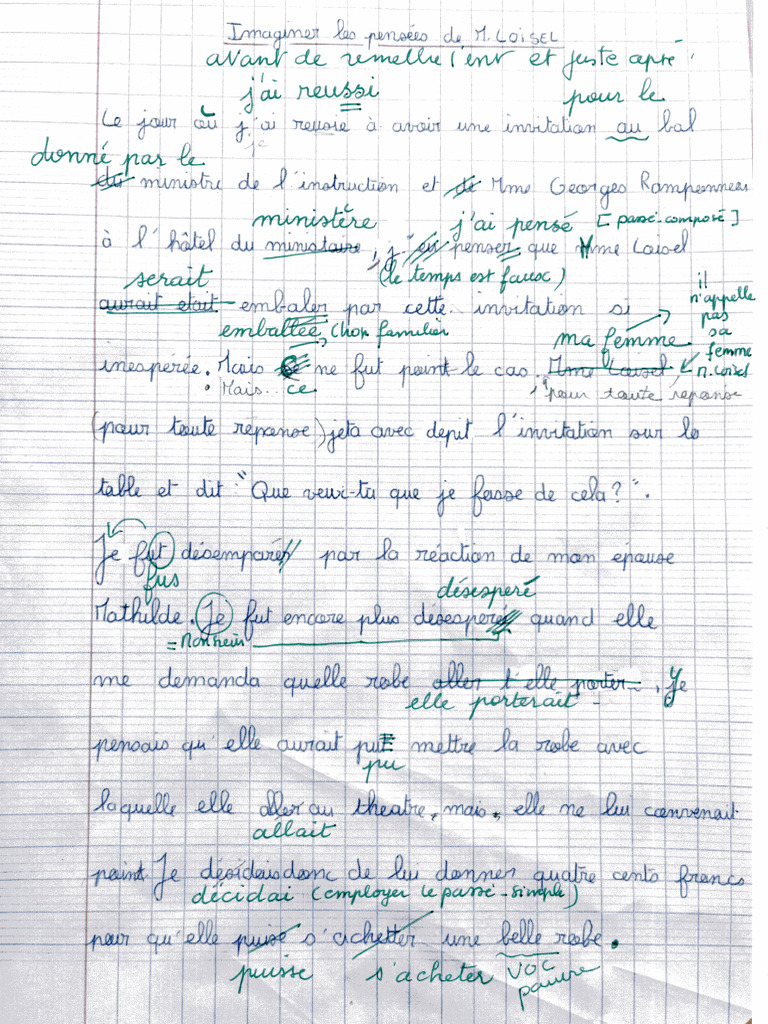 Imaginer les pensées de M. LOISEL
avant de remettre l'env et juste après.
j'ai reussi pour le
Le jour où j'ai reusie à avoir une invitation au bal
je
donné par le
du ministre de l'instruction et de Mme Georges Ramponneau
ministère j'ai pensé [passé-composé]
à l'hôtel du ministaire, j'eu penser que Mme Loisel
serait (le temps est faux)
aurait etait embaler par cette invitation si
emballée, (trop familier
il n'appelle pas sa femme M. Loisel
ma femme
inesperée. Mais ce ne fut point le cas. Mme Loisel,
. Mais... ce , pour toute reponse
(pour toute reponse) jeta avec depit l'invitation sur la
table et dit "Que veux-tu que je fasse de cela?".
Je fut désemparé par la réaction de mon epouse
fus désesperé
Mathilde. Je fut encore plus désesperé quand elle
= Monsieur
me demanda quelle robe aller t'elle porter. Je
elle porterait
pensais qu'elle aurait put mettre la robe avec
pu
laquelle elle aller au theatre, mais, elle ne lui convenait
allait
point. Je decidais donc de lui donner quatre cents francs
décidai (employer le passé-simple)
pour qu'elle puise s'achetter une belle robe.
puisse s'acheter voc pauvre